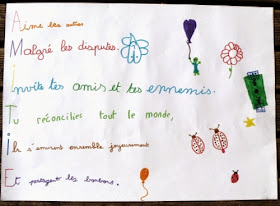 Aime les autres
Malgré les disputes.
Invite tes amis et tes ennemis.
Tu réconcilies tout le monde,
Ils s'amusent ensemble joyeusement
Et partagent les bonbons.